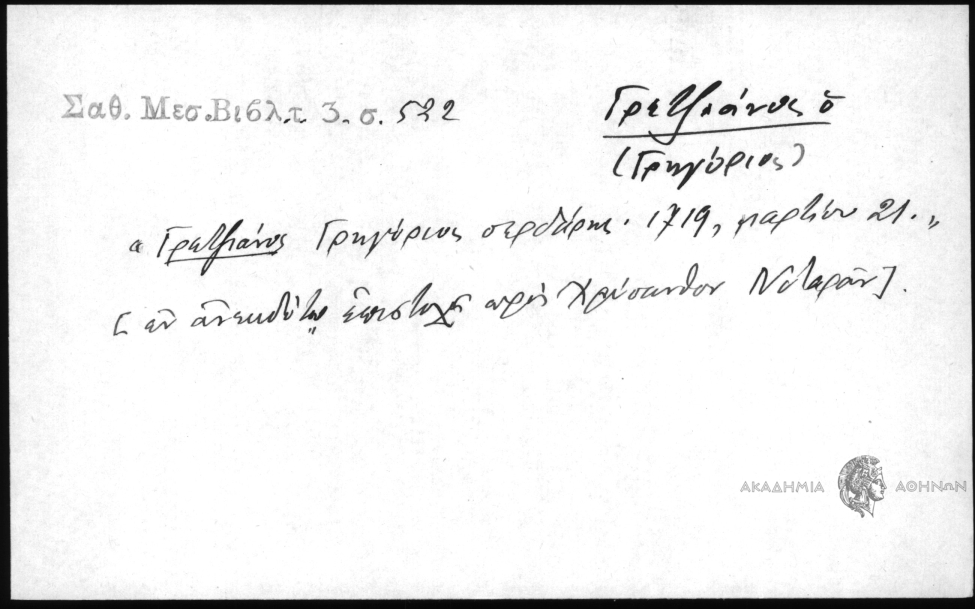 Σαθ. Μεσ.Βιβλ.τ. 3. σ. 522
Γρετζιάνος ὁ
(Γρηγόριος)
« Γρετζιάνος Γρηγόριος σερδάρης. 1719, μαρτίου 21. „
[ ἐν ἀνεκδότῳ ἐπιστολῇ πρὸς Χρύσανθον Νοταρᾶν ].
ΑΚΑΔΗΜΙΑ ΑΘΗΝΩΝ